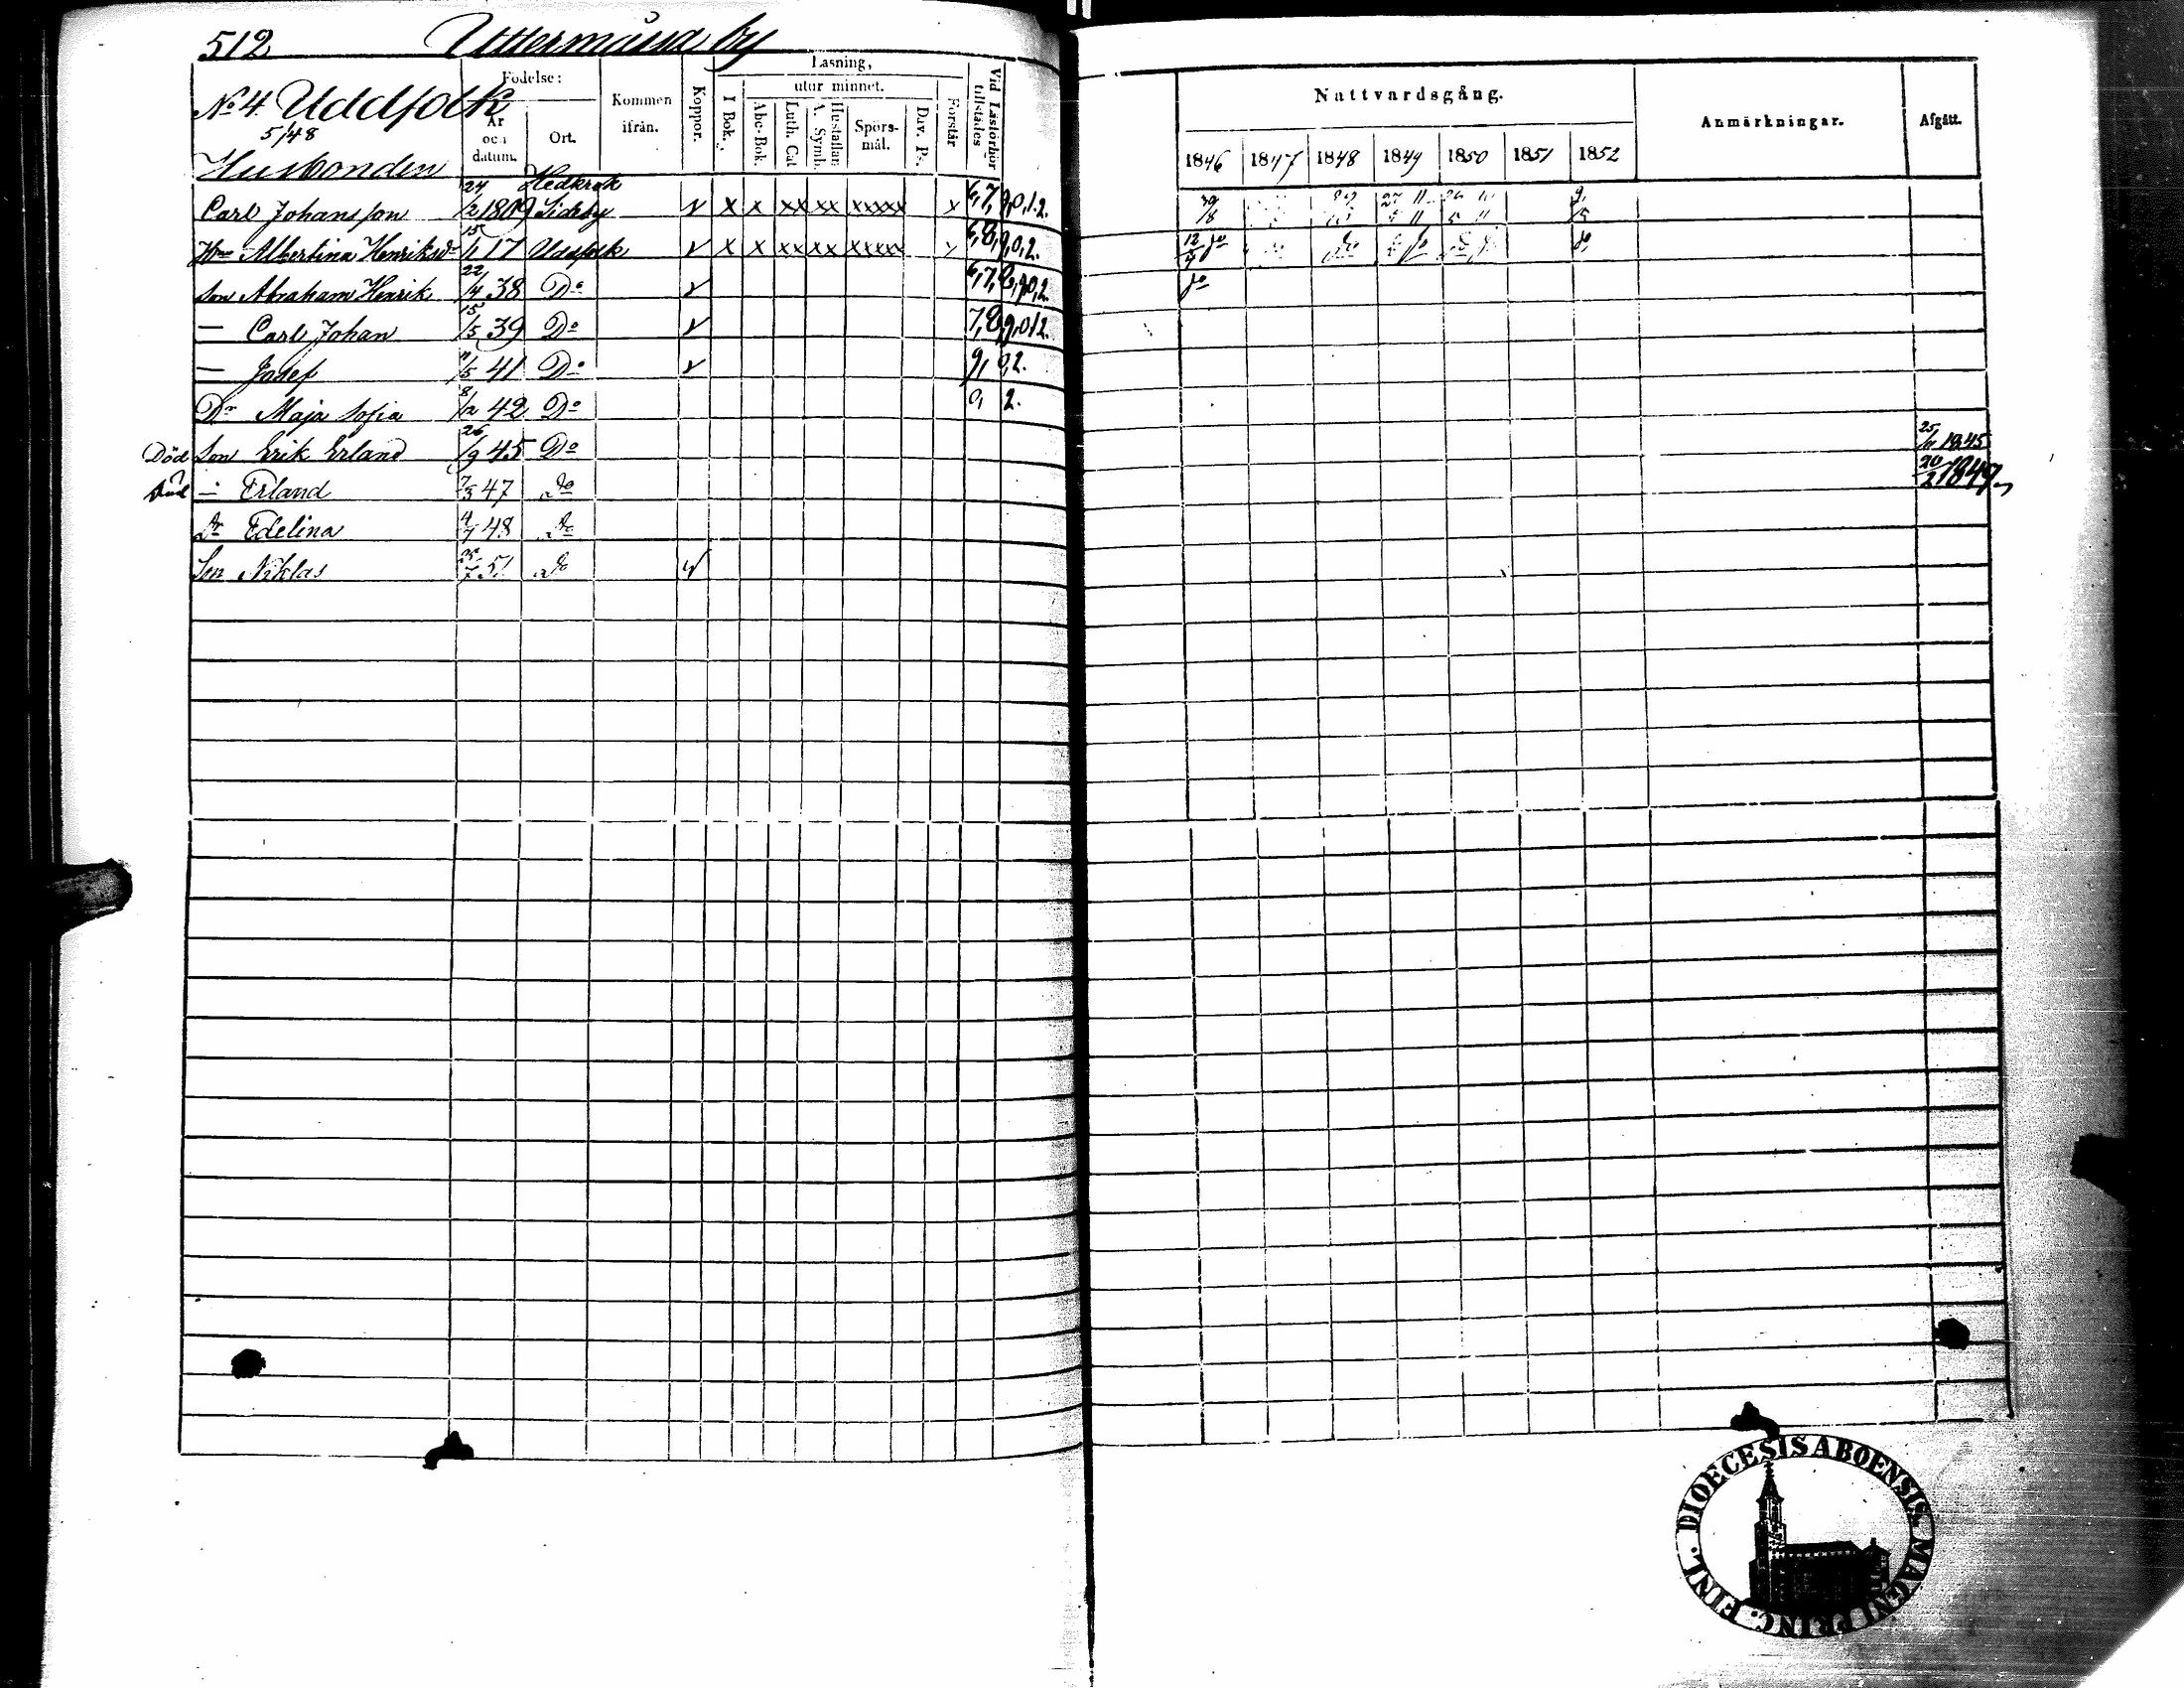 512 Uttermåssa by
No 4. Uddfolk
5/48
Husbonden
Födelse:
År och datum.
Ort.
Kommen ifrån.
Koppor.
Läsning,
utur minnet.
I Bok.
Abc-Bok.
Luth. Cat
Hustaflan. A. Symb.
Spörs-mål.
Dav. Ps.
Förstår
Vid Läsförhör tillstädes
Nattvardsgång.
1846 1847 1848 1849 1850 1851 1852
Anmärkningar.
Afgått.
Carl Johansson 24/2 1809 Hedkrok Sideby v x x xx xx xxxxx x 6,7,9,0,1.2.
Hru Albertina Henriksdr 15/1 17 Uddfolk v x x xx xx xxxx x 6,8,9,0,2. do
Son Abraham Henrik 22/4 38 Do v 6,7,8,9,0,2. do
— Carl Johan 15/5 39 Do v 7,8,9,0,1,2.
— Josef 11/5 41 Do v 9,0,2.
Dr Maja Sofia 8/12 42 Do 0, 2.
Död Son Erik Erland 26/9 45 Do 25/11 1845
Död — Erland 7/3 47 do 20/2 1849
Dr Edelina 4/7 48 do
Son Niklas 25/7 51 do v
DIOECESIS ABOENSIS MAGNI PRINC. FINL.